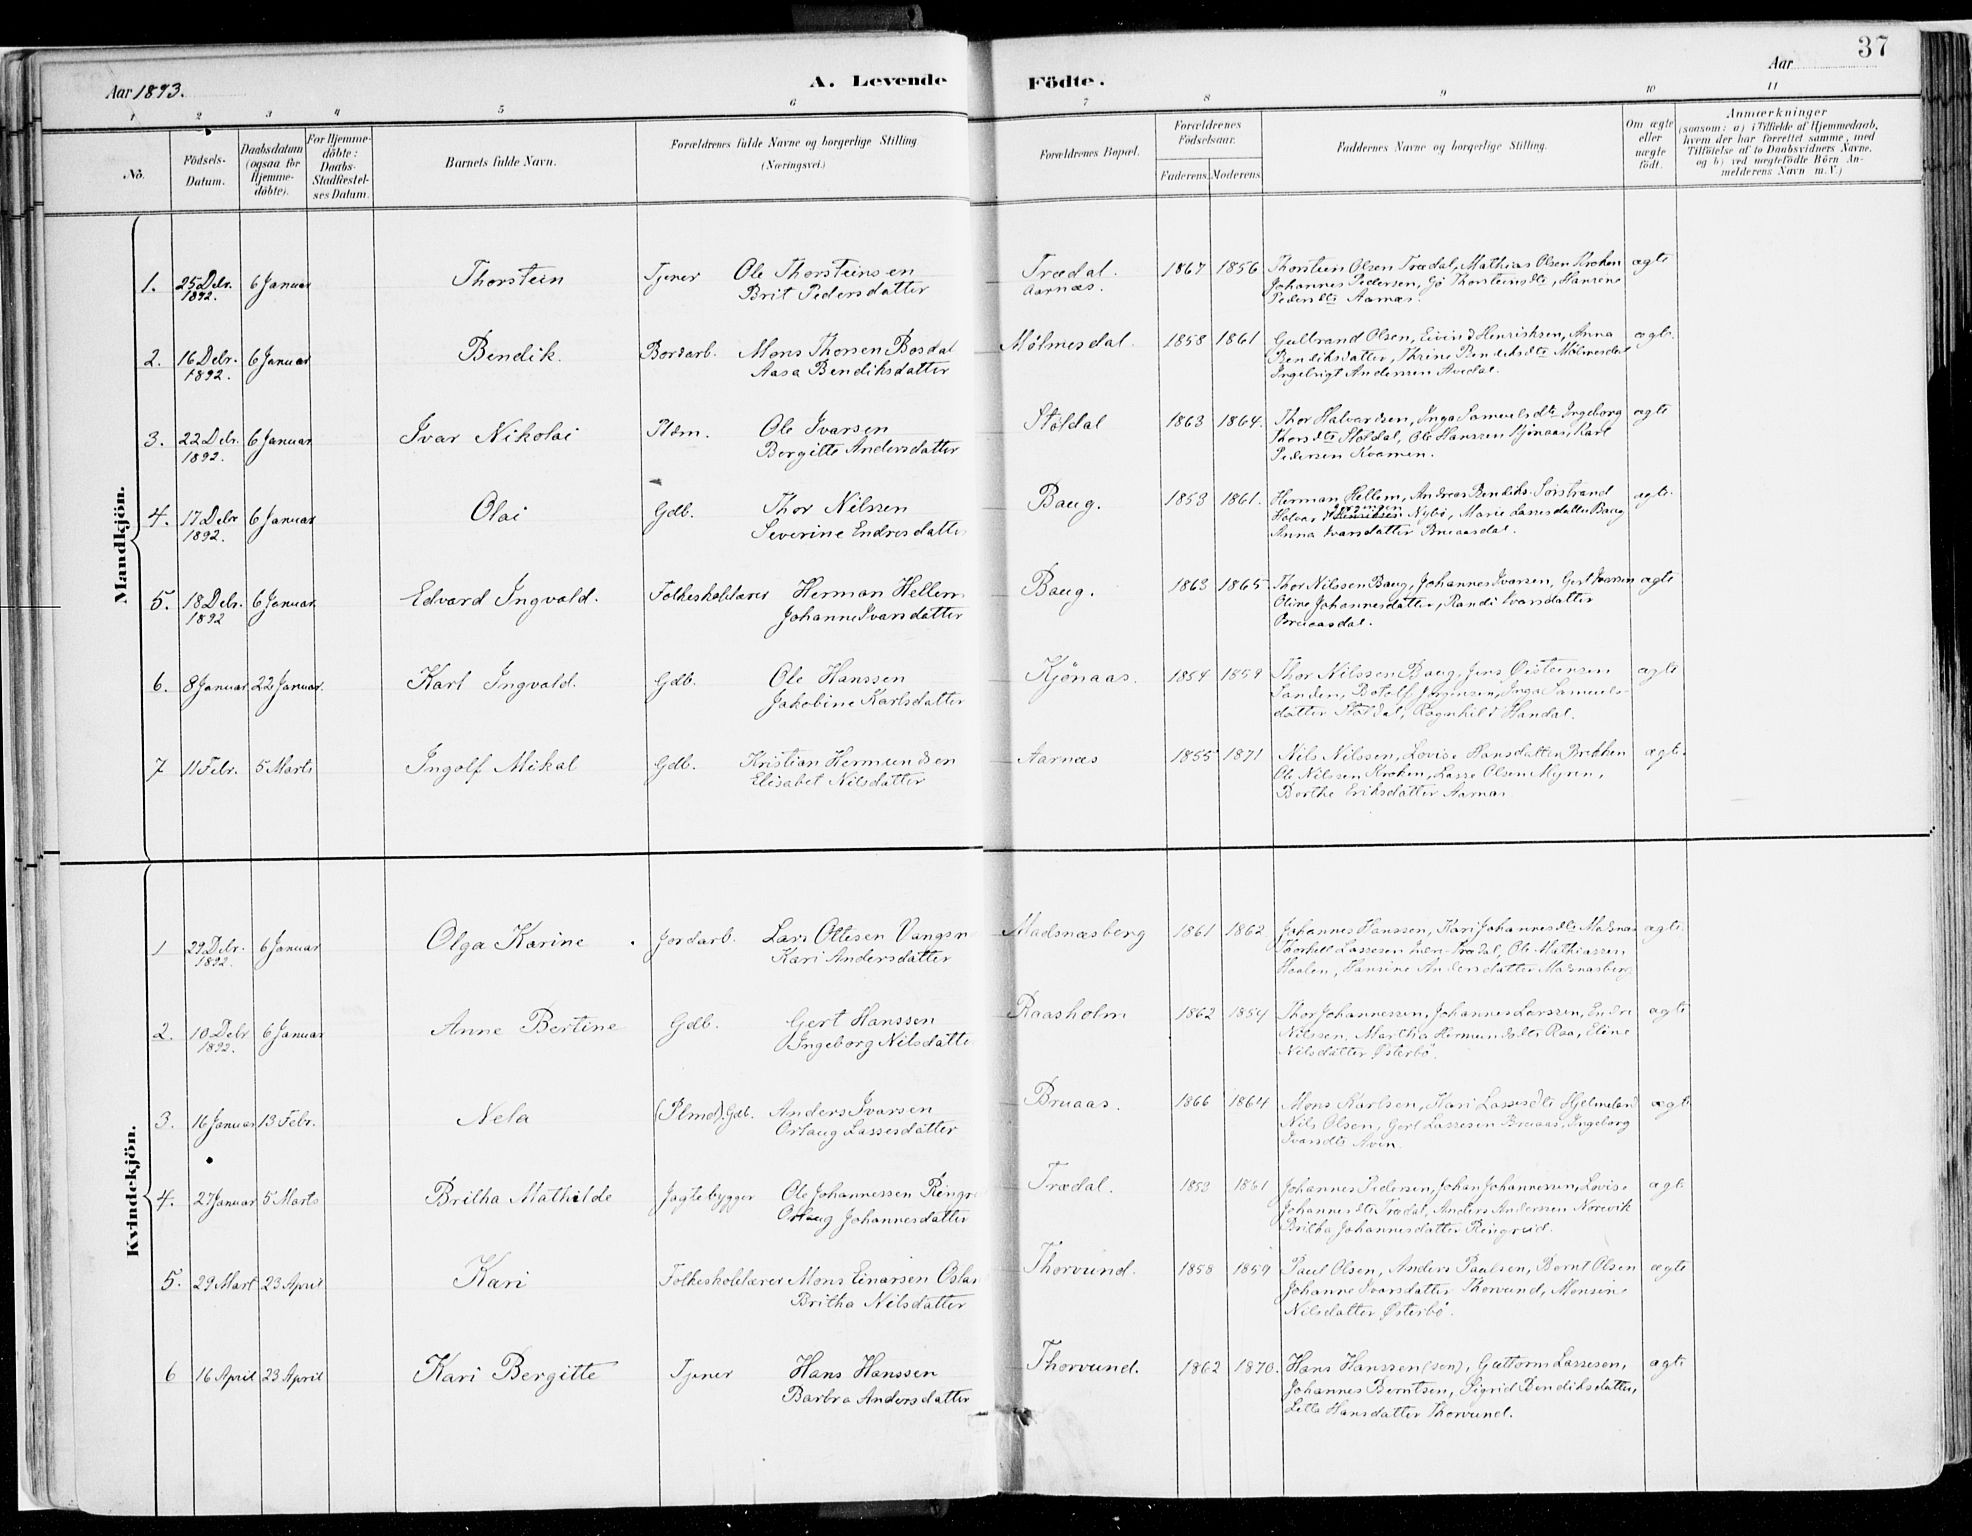 37
Aar 1893.
A. Levende Födte.
Aar
1 2 3 4 5 6 7 8 9 10 11
No.
Födsels-Datum.
Daabsdatum (ogsaa for Hjemme-döbte).
For Hjemme-döbte: Daabs-Stadfæstel-ses Datum.
Barnets fulde Navn.
Forældrenes fulde Navne og borgerlige Stilling (Næringsvei.)
Forældrenes Bopæl.
Forældrenes Födselsaar.
Faderens. Moderens.
Faddernes Navne og borgerlige Stilling.
Om ægte eller uægte födt.
Anmærkninger
(saasom: a) i Tilfælde af Hjemmedaab, hvem der har forrettet samme, med Tilföielse af to Daabsvidners Navne, og b) ved uægtefödte Börn An-melderens Navn m. V.)
Mandkjön.
1. 25 Debr. 1892. 6 Januar Thorstein Tjener Ole Thorsteinsen
Brit Pedersdatter
Trædal. Aarnæs. 1867 1856 Thorstein Olsen Trædal, Mathias Olsen Kroken ægte
Johannes Pedersen, Thorsteinsdtr, Hansine
Pedersdtr Aarnæs.
2. 16 Debr. 1892. 6 Januar Bendik. Bordarb. Mons Thorsen Bosdal
Aasa Bendiksdatter
Mølmesdal. 1858 1861 Guttorm Olsen, Eivind Henriksen, Anna ægte
Bendiksdatter, Thrine Bendiksdtr Mølmesdal
Ingebrigt Andersen Avedal.
3. 22 Debr. 1892. 6 Januar Ivar Nikolai Pldm. Ole Ivarsen
Bergitte Andersdatter
Støldal 1863 1864. Thor Halvardsen, Inga Samuelsdtr Ingeborg ægte
Thorsdtr Støldal, Ole Hanssen Kjønaas, Karl
Pedersen Kvamen.
4. 17 Debr 1892. 6 Januar Olai Gdb. Thor Nilssen
Severine Endresdatter
Baug. 1853 1861. Herman Hellem, Andreas Bendiks. Sørstrand ægte
Halvard Nybø, Marie Lassesdatter Baug
Anna Ivarsdatter Bruaasdal.
5. 18 Debr. 1892 6 Januar. Edvard Ingvald. Folkeskolelærer Herman Hellem
Johanne Ivarsdatter
Baug. 1863 1865 Thor Nilssen Baug, Johannes Ivarsen, Gert Ivarsen ægte
Oline Johannesdatter, Randi Ivarsdatter
Bruaasdal.
6. 8 Januar 22 Januar. Karl Ingvald. Gdb. Ole Hanssen
Jakobine Karlsdatter
Kjønaas. 1854 1859 Thor Nilssen Baug, Jens Øisteinsen ægte
Sanden, Botolf Jørgensen, Inga Samuels-
datter Støldal, Ragnhild Handal.
7 11 Febr. 5 Marts Ingolf Mikal Gdb. Kristian Hermundsen
Elisabet Nilsdatter
Aarnæs 1855 1871 Nils Nilssen, Lovise Hansdatter Brekken ægte
Ole Nilssen Kroken, Lasse Olsen Myren,
Berthe Eriksdatter Aarnæs
Kvindekjön.
1 29 Debr. 1892. 6 Januar Olga Karine Jordarb. Lars Ottesen Vangsn
Kari Andersdatter
Madsnæsberg 1861 1862 Johannes Hanssen, Kari Johannesdtr Madsnæs ægte
Thorkel Lassesen Trædal, Ole Mathiassen
Haalen, Hansine Andersdatter Madsnæsberg
2. 10 Debr 1892. 6 Januar Anne Bertine Gdb. Gert Hanssen
Ingeborg Nilsdatte
Raasholm 1862 1854 Thor Johannessen, Johannes Larssen, Endre ægte
Nilssen, Martha Hermundsdtr Raa, Eline
Nilsdatter Østerbø.
3. 16 Januar 13 Febr. Nela (Plmd). Gdb. Anders Ivarsen
Orlaug Lassesdatter
Bruaas. 1866 1864 Mons Karlsen, Kari Lassesdtr Hjelmeland ægte
Nils Olsen, Gert Lassesen Bruaas, Ingeborg
Ivarsdtr Avin.
4. 27 Januar 5 Marts Britha Mathilde Jagtebygger Ole Johannessen Ringre
Orlaug Johannesdatter
Trædal. 1853 1861 Johannes Pedersen, Johan Johannessen, Lovise ægte
Johannesdtr Trædal, Anders Anderssen Norevik
Britha Johannesdatter Ringreid.
5. 29 Mart 23 April Kari Folkeskolelærer Mons Einarsen Osla
Britha Nilsdatter
Thorvund. 1858 1859 Paul Olsen, Anders Paulsen, Bernt Olsen ægte
Johanne Ivarsdatter Thorvund, Monsine
Nilsdatter Østerbø.
6 16 April 23 April Kari Bergitte Tjener Hans Hanssen
Barbra Andersdatter
Thorvund. 1862 1870. Hans Hanssen (sen), Guttorm Lassesen, ægte
Johannes Berntsen, Sigrid Bendiksdatter,
Letta Hansdatter Thorvund.